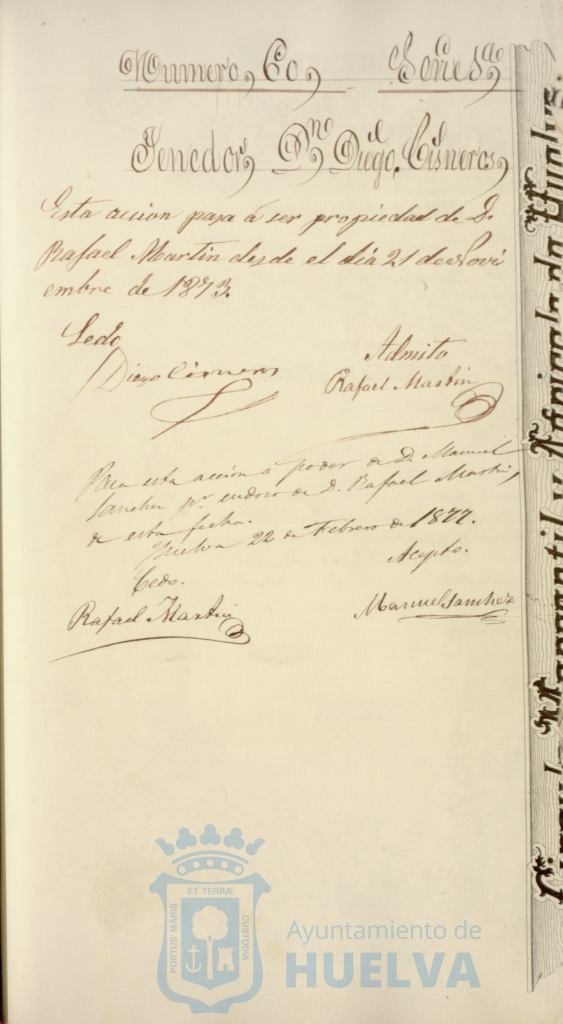 Numero, 60,
Tenedor, Dn. Diego, Cisneros,
Esta accion pasa á ser propiedad de D.
Rafael Martin desde el dia 21 de Novi
embre de 1873.
Cedo
Admito
Diego Cisneros
Rafael Martin
Pasa esta acción á poder de D. Manuel
Sanchez pr endoso de D. Rafael Martin,
de esta fecha.
Huelva 22 de Febrero de 1877.
Cedo.
Acepto.
Rafael Martin
Manuel Sanchez
Mercantil y Agricola de Huelva.
PORTUS MARIS ET TERRÆ CUSTODIA
Ayuntamiento de
HUELVA